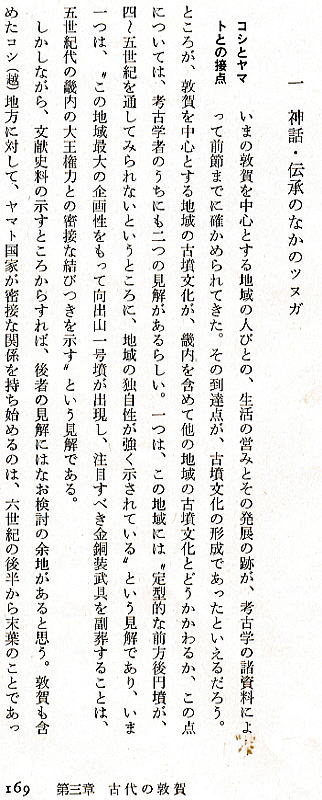 一　神話・伝承のなかのツヌガ
コシとヤマ
トとの接点
いまの敦賀を中心とする地域の人びとの、生活の営みとその発展の跡が、考古学の諸資料によ
って前節までに確かめられてきた。その到達点が、古墳文化の形成であったといえるだろう。
ところが、敦賀を中心とする地域の古墳文化が、畿内を含めて他の地域の古墳文化とどうかかわるか、この点
については、考古学者のうちにも二つの見解があるらしい。一つは、この地域には〝定型的な前方後円墳が、
四〜五世紀を通してみられないというところに、地域の独自性が強く示されている〟という見解であり、いま
一つは、〝この地域最大の企画性をもって向出山一号墳が出現し、注目すべき金銅装武具を副葬することは、
五世紀代の畿内の大王権力との密接な結びつきを示す〟という見解である。
しかしながら、文献史料の示すところからすれば、後者の見解にはなお検討の余地があると思う。敦賀も含
めたコシ（越）地方に対して、ヤマト国家が密接な関係を持ち始めるのは、六世紀の後半から末葉のことであっ
169　第三章　古代の敦賀